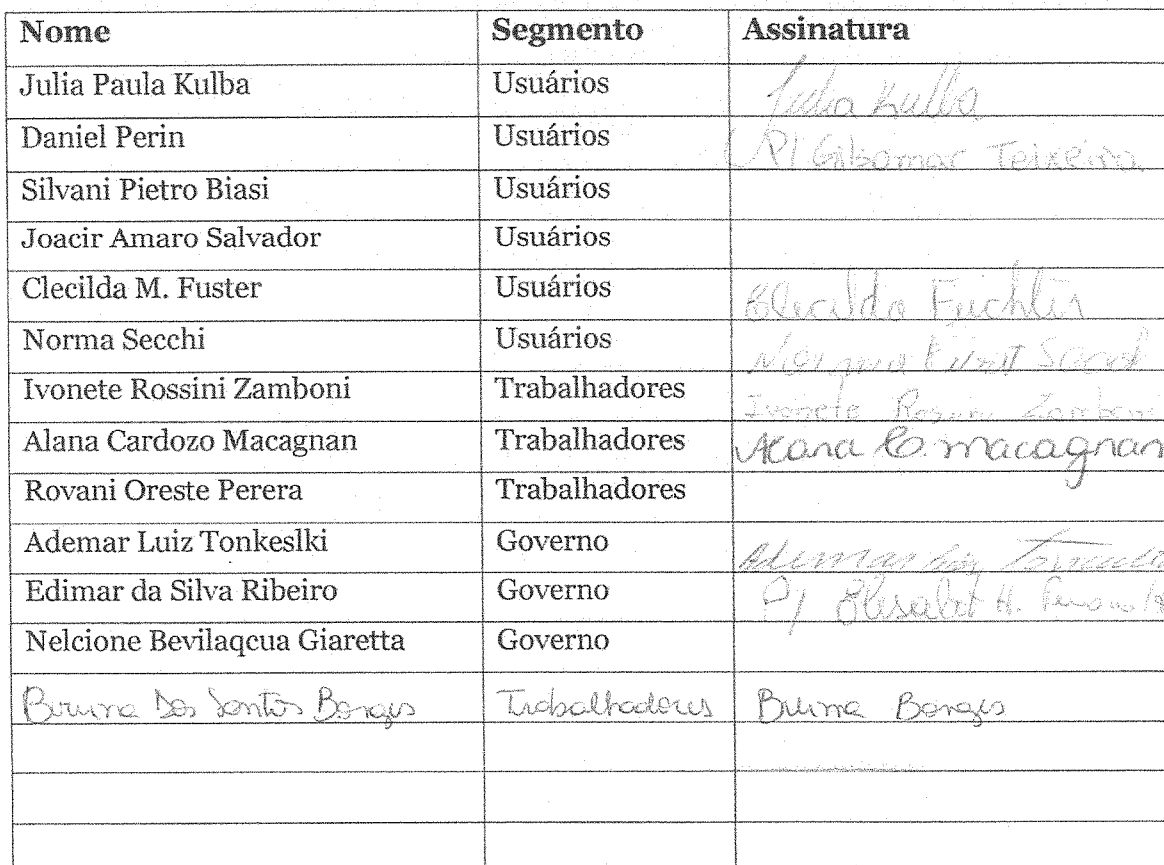 Nome Segmento Assinatura
Julia Paula Kulba Usuários Julia Kulba
Daniel Perin Usuários P/ Gilsomar Teixeira
Silvani Pietro Biasi Usuários
Joacir Amaro Salvador Usuários
Clecilda M. Fuster Usuários Clecilda
Norma Secchi Usuários Norma
Ivonete Rossini Zamboni Trabalhadores Ivonete Rossini Zamboni
Alana Cardozo Macagnan Trabalhadores Alana C. Macagnan
Rovani Oreste Perera Trabalhadores
Ademar Luiz Tonkeslki Governo Ademar Luiz
Edimar da Silva Ribeiro Governo P/ H.
Nelcione Bevilaqcua Giaretta Governo
Bruna Dos Santos Borges Trabalhadores Bruna Borges